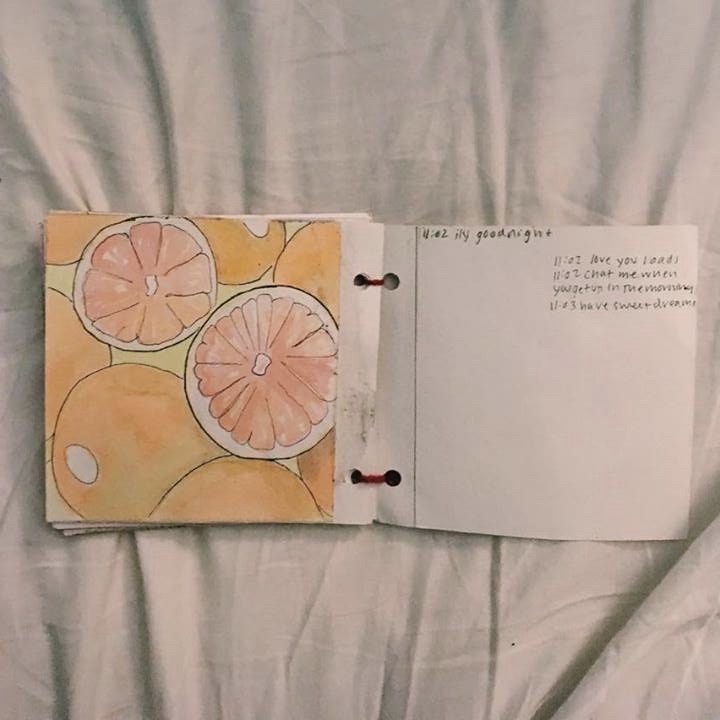 11:02 ily goodnight
11:02 love you loads
11:02 chat me when
you get up in the morning
11:03 have sweet dreams